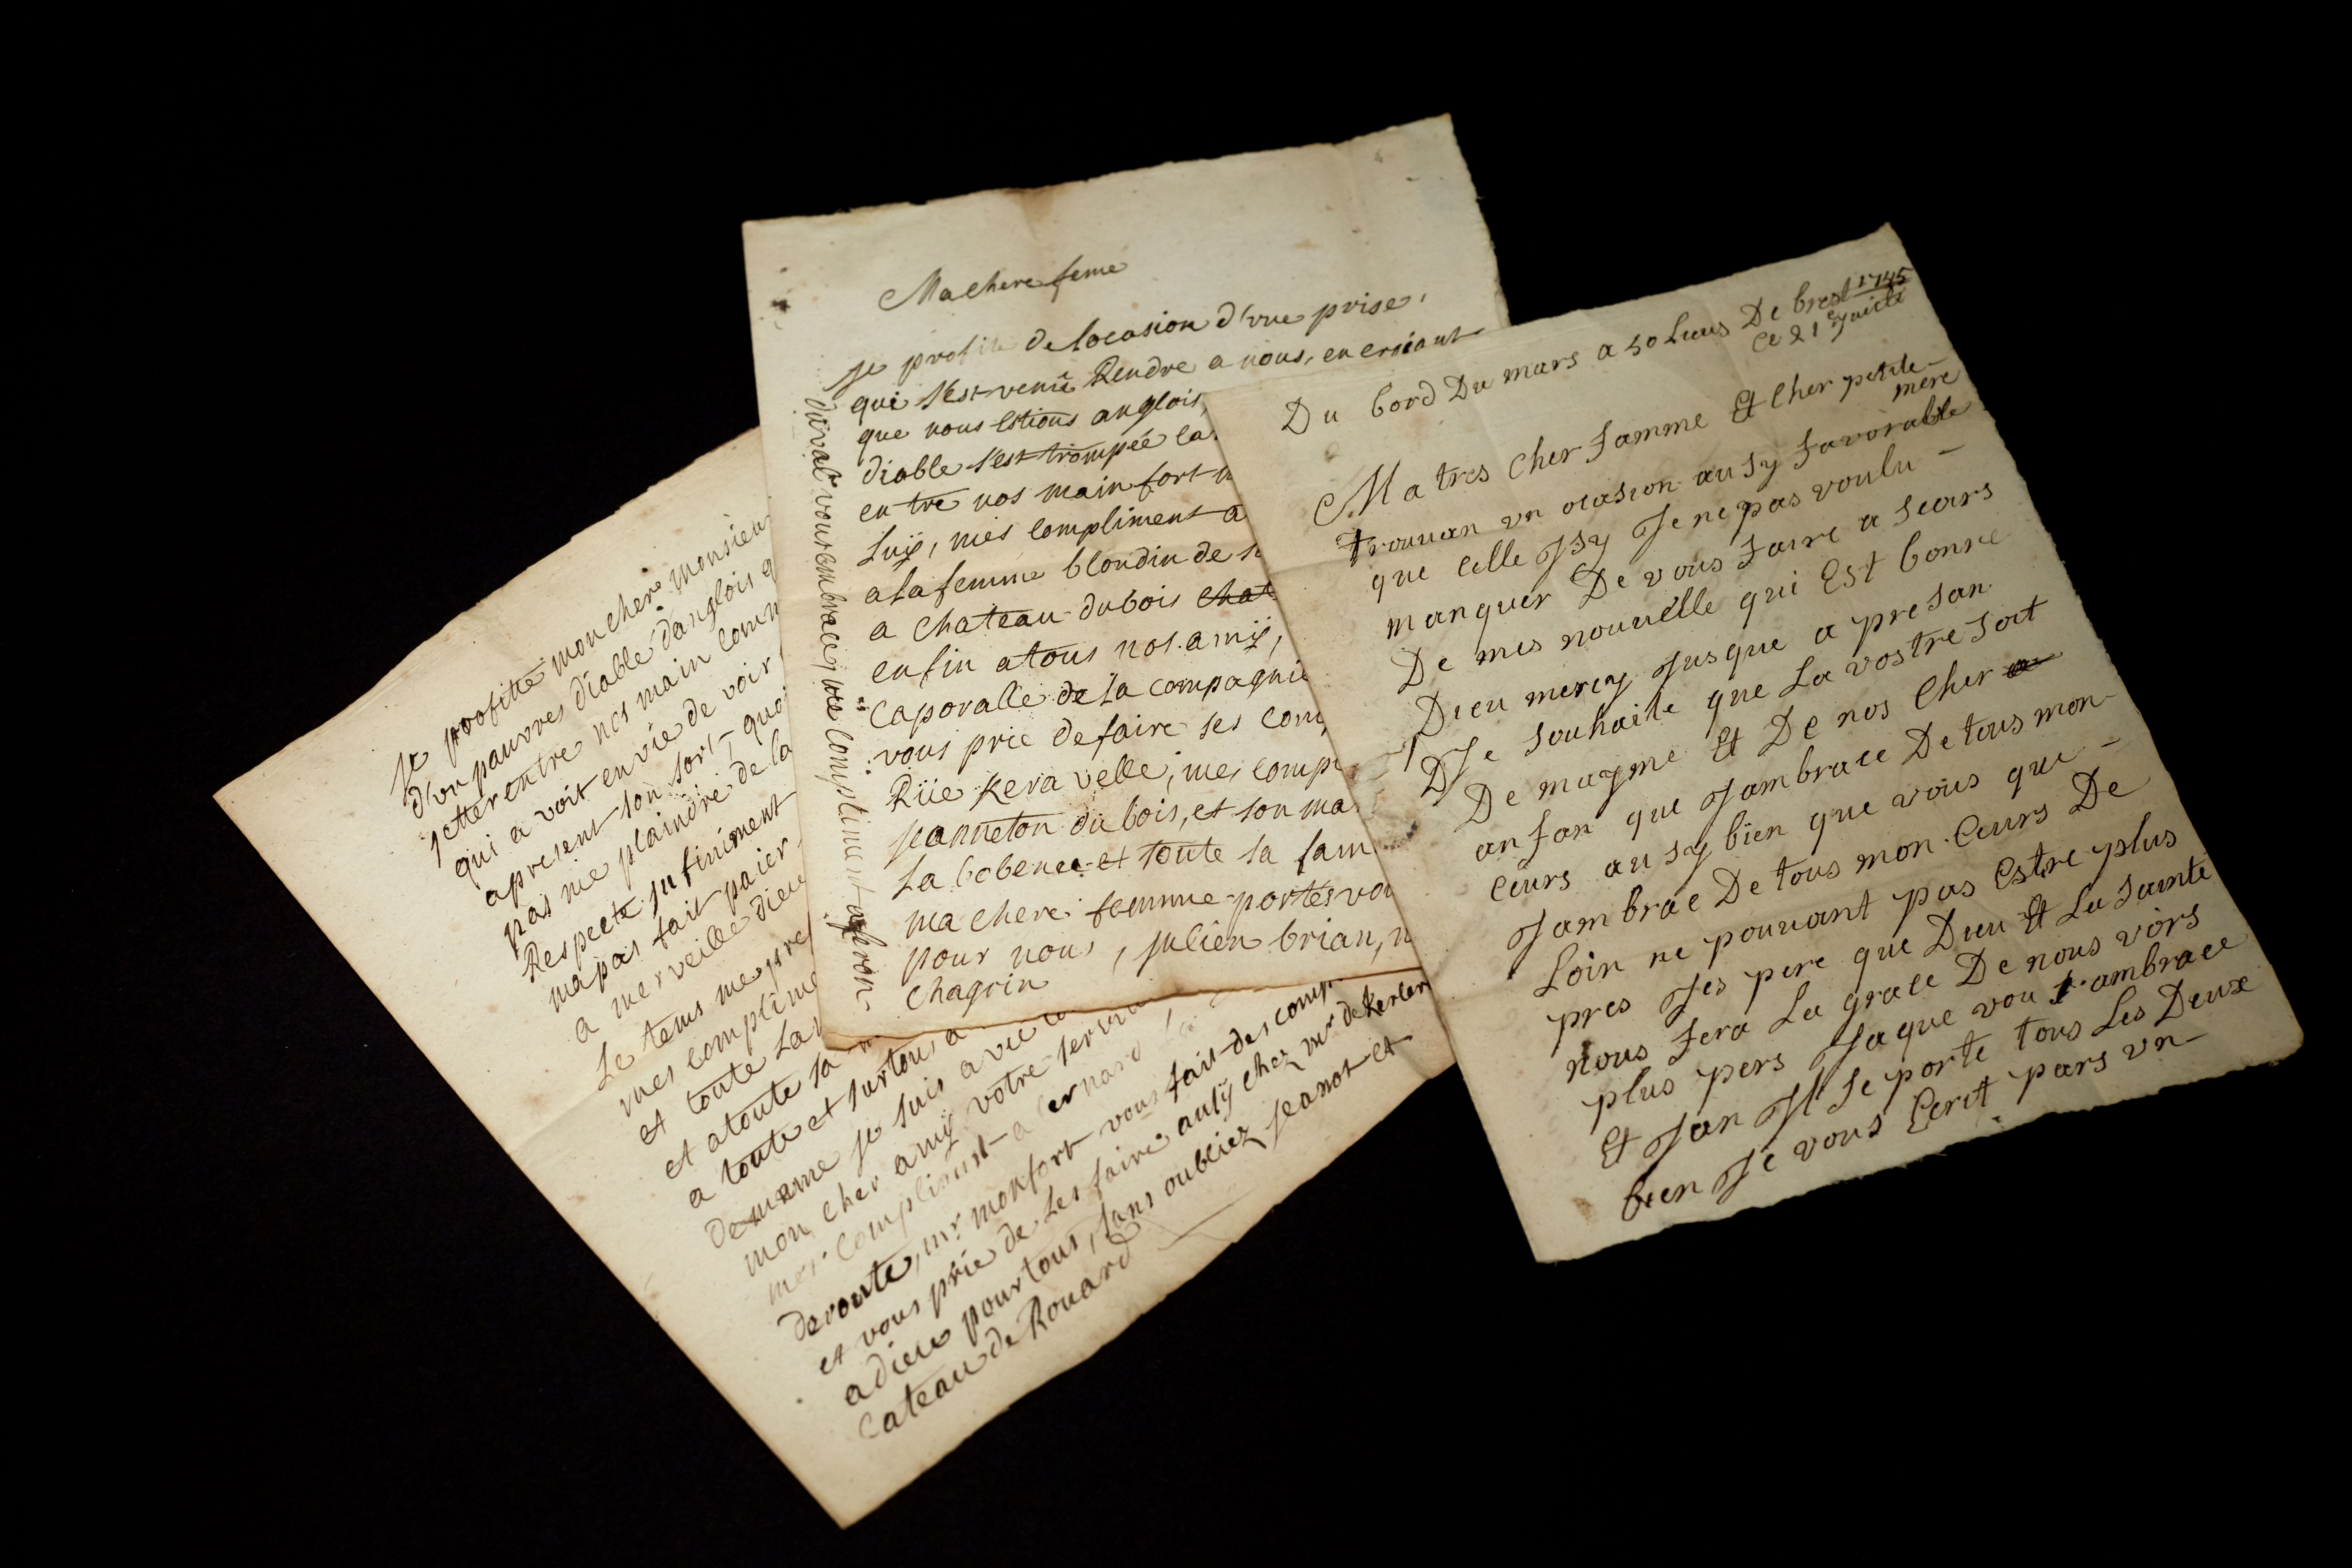 je profitte mon chere monsieur
d'un pauvres diable danglois q
jetter entre nos main comm
qui a voit en vie de voir
apresent son sort, quoi
pas me plaindre de la
Respecte jnfiniment
ma pas fait paier
a merveille dieu
Le tems me pre
mes complime
et toute la
et atoute sa
a toute et surtous a
de mame je suis avec
mon cher amy votre servi
mes compliment a bernard
deroute, mr monfort vous fait des comp
et vous prie de les faire ausy chez mr de Kerler
adieu pour tous, sans oubliez jeanot et
Cateau de Rouard
Ma chere feme
je profite de locasion d'une prise,
qui s'est venu Rendre a nous, en croiant
que nous Etions anglois,
diable s'est trompée la
entre nos main fort
Luy, mes compliment a
a la femme blondin de
a Chateau dubois chat
enfin atous nos amij,
Caporalle de la compagnie
vous prie defaire ses com
Rüe Keravelle, mes comp
jeanneton dubois, et son ma
La bobenee et toute sa fam
ma chere femme portes vo
pour nous, julien brian,
Chagrin
duval vous embrace, mes compliment
Du bord Du mars a 50 Lieus De brest 1745
Ce 21 Juielt
Ma tres Cher famme Et Cher petite
mere
trouvan un ocasion ausy favorable
que celle Jsy Je ne pas voulu
manquer De vous faire a seurs
De mes nouvelle qui Est bonne
Dieu mercy Jusque a presan
Je souhaite que La vostre soit
De mayme Et De nos Cher
anfan que Jambrace De tous mon
Ceurs ausy bien que vous que
Jambrae De tous mon Ceurs De
Loin ne pouvant pas Estre plus
pres Jes pere que Dieu Et La sainte
nous fera La grace De nous voirs
plus pers Jaque vou s ambrace
Et Jan Jl se porte tous Les Deux
bien Je vous Ecrit pars un